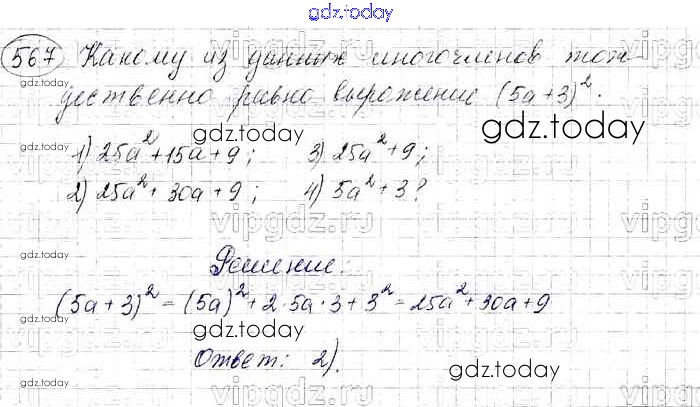 gdz.today
567 Какому из данных многочленов тож-
дественно равно выражение (5a+3)²:
gdz.today
gdz.today
1) 25a²+15a+9; 3) 25a²+9;
gdz.today
2) 25a²+30a+9; 4) 5a²+3?
vipgdz.ru
gdz.today
Решение:
(5a+3)² = (5a)²+2·5a·3+3² = 25a²+30a+9
gdz.today
gdz.today
Ответ: 2).
gdz.today
gdz.today
vipgdz.ru